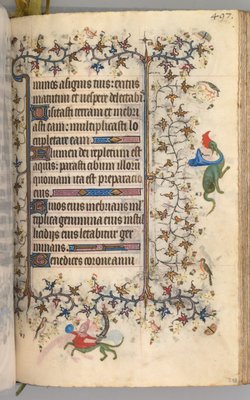 497.
minos a signis tuis: exitus
matutini et uespere delectabi
Uisitasti terram et inebri
asti eam: multiplicasti lo
cupletare eam
Flumen dei repletum est
aquis: parasti cibum illorū
quoniam ita est preparatio
eius
Riuos eius inebrians ml
tiplica genimina eius in stil
licidijs eius letabitur ger
minans.
Benedices corone anni